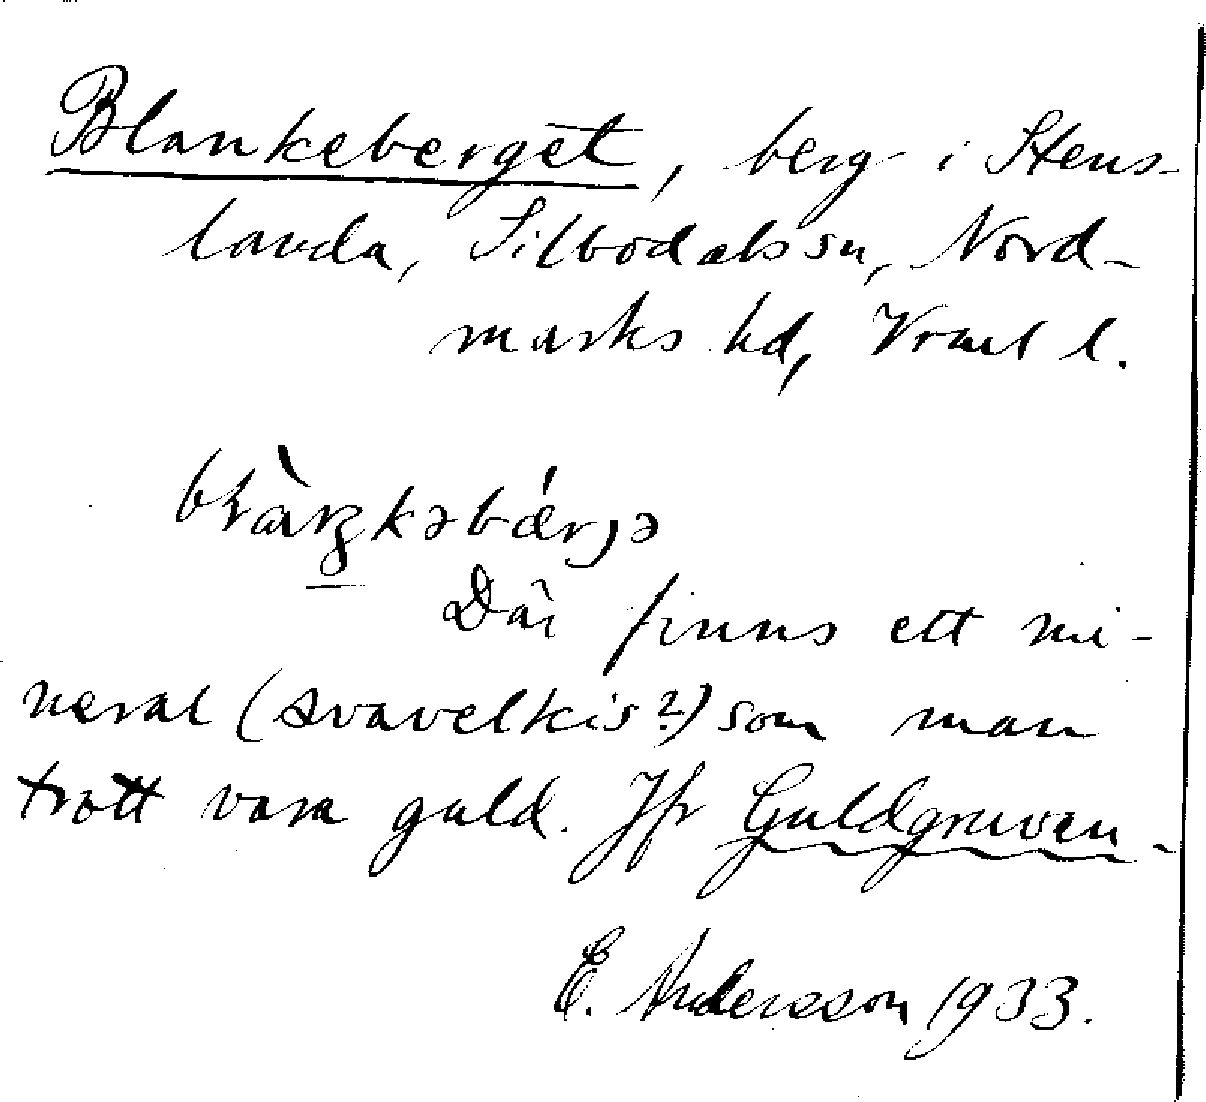 Blankeberget, berg i Stens-
landa, Silbodals sn, Nord-
marks hd, Vrml l.
Där finns ett mi-
neral (svavelkis?) som man
trott vara guld. Jfr Guldgruvan.
E. Andersson 1933.